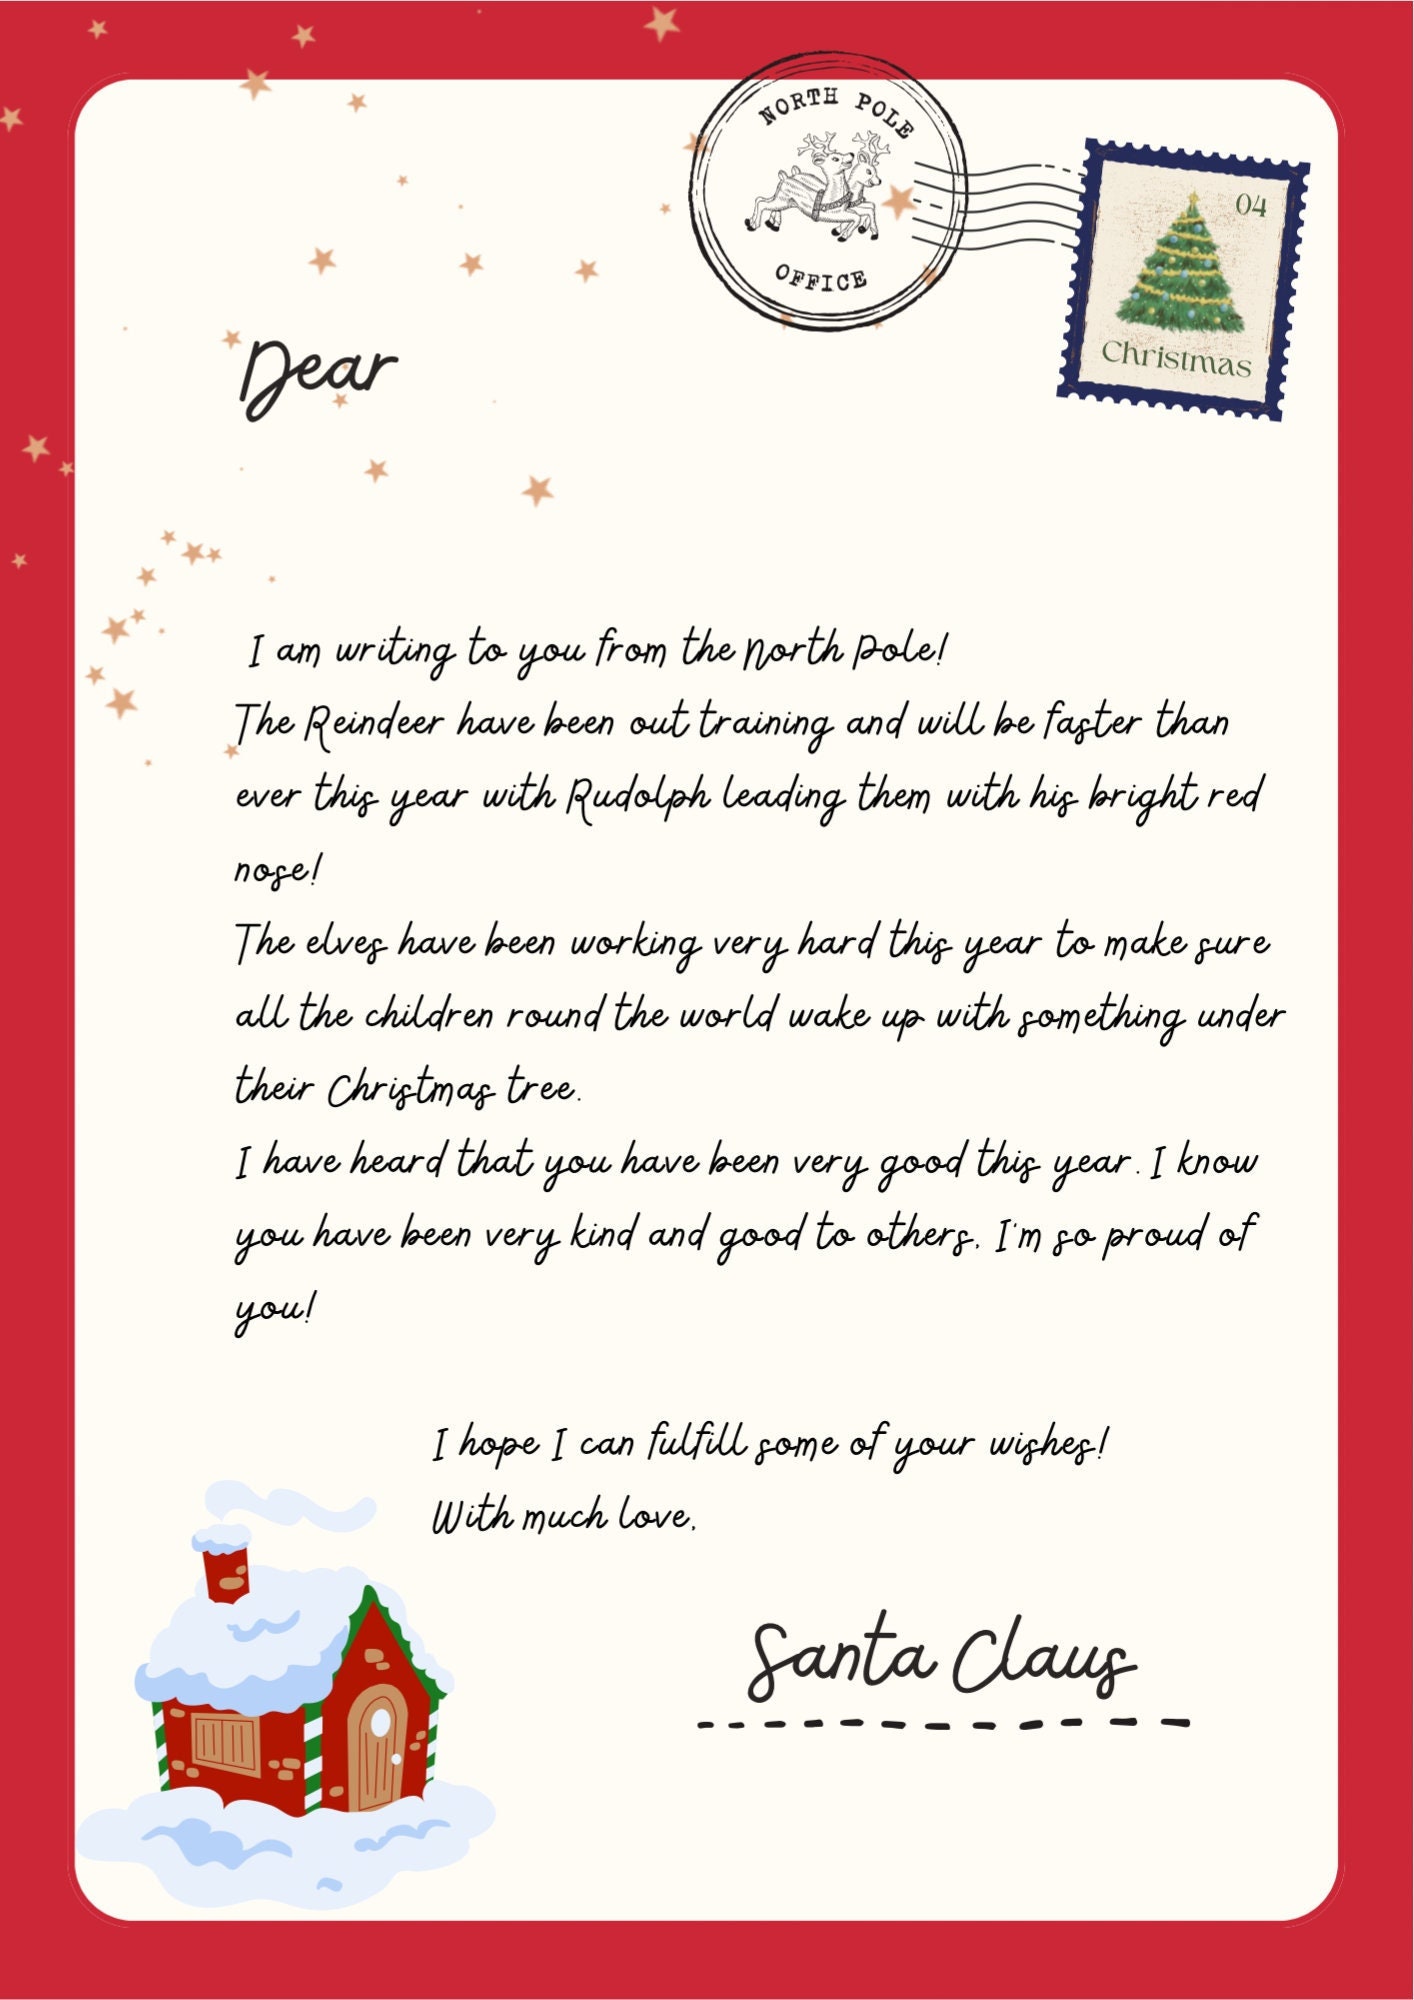 NORTH POLE
OFFICE
04
Christmas
Dear
I am writing to you from the North Pole!
The Reindeer have been out training and will be faster than
ever this year with Rudolph leading them with his bright red
nose!
The elves have been working very hard this year to make sure
all the children round the world wake up with something under
their Christmas tree.
I have heard that you have been very good this year. I know
you have been very kind and good to others, I'm so proud of
you!
I hope I can fulfill some of your wishes!
With much love,
Santa Claus